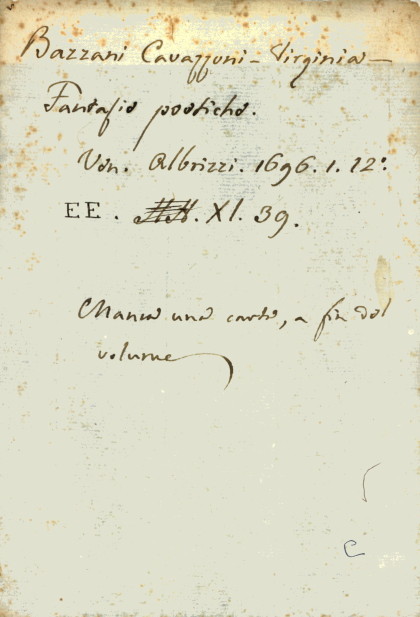 Bazzani Cavazzoni - Virginia -
Fantasie poetiche.
Ven. Albrizzi. 1696. 1. 12º.
EE. XI. 39.
Manca una carta, a fin del
volume
C